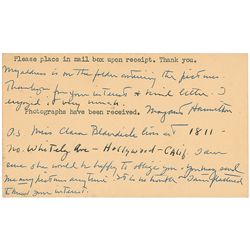 Please place in mail box upon receipt. Thank you.
My address is on the folder containing the pictures.
Thank you for your interest & kind letter. I
enjoyed it very much.
Photographs have been received. Margaret Hamilton
P.S. Miss Clara Blandick lives at 1811 -
No. Whitely Ave - Hollywood - Calif. I am
sure she would be happy to oblige you - you may send
me any pictures any time. It is no trouble - I am flattered
your interest.